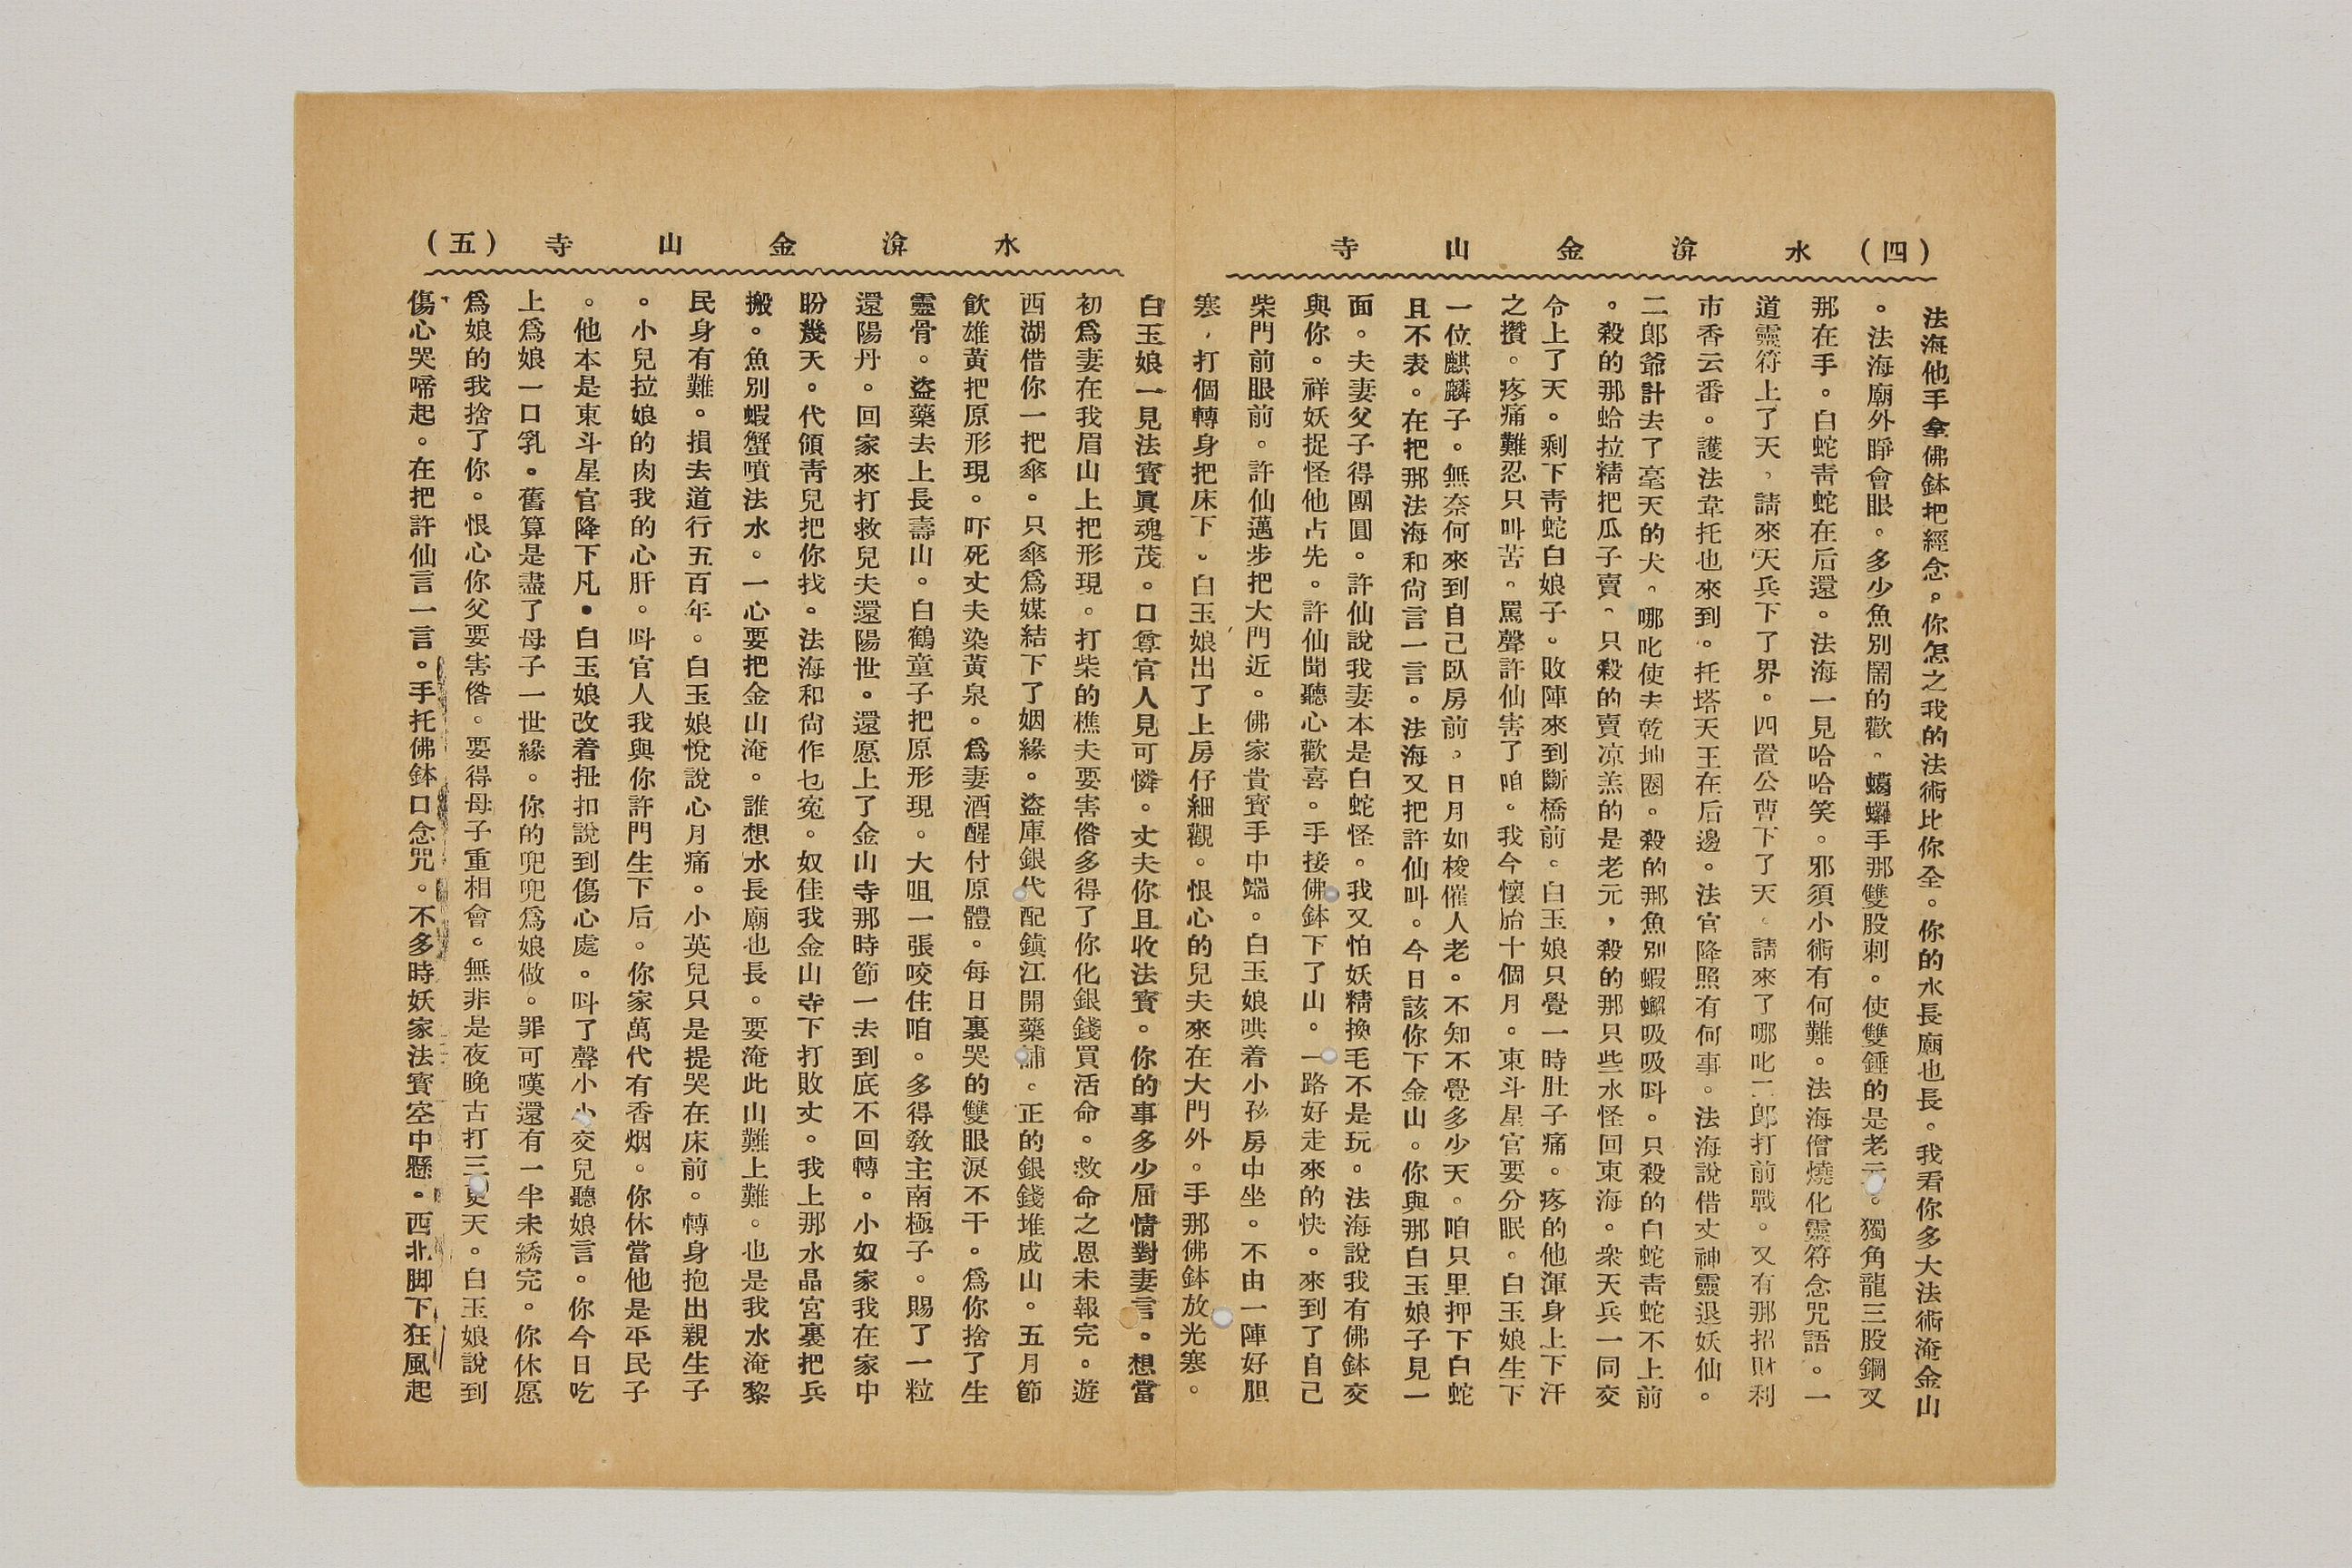 (四) 水渰金山寺
法海他手拿佛鉢把經念。你怎之我的法術比你全。你的水長廟也長。我看你多大法術淹金山
。法海廟外睜會眼。多少魚別鬧的歡。蟣蠟手那雙股刺。使雙錘的是老元。獨角龍三股鋼叉
那在手。白蛇青蛇在后還。法海一見哈哈笑。邪須小術有何難。法海僧燒化靈符念咒語。一
道靈符上了天，請來天兵下了界。四置公曹下了天。請來了哪叱二郎打前戰。又有那招財利
市香云番。護法韋托也來到。托塔天王在后邊。法官降照有何事。法海說借丈神靈退妖仙。
二郎爺計去了毫天的犬。哪叱使夫乾坤圈。殺的那魚別蝦蠏吸吸呌。只殺的白蛇青蛇不上前
。殺的那蛤拉精把瓜子賣、只殺的賣凉羔的是老元，殺的那只些水怪回東海。衆天兵一同交
令上了天。剩下青蛇白娘子。敗陣來到斷橋前。白玉娘只覺一時肚子痛。疼的他渾身上下汗
之攢。疼痛難忍只叫苦。罵聲許仙害了咱。我今懷胎十個月。東斗星官要分眠。白玉娘生下
一位麒麟子。無奈何來到自己臥房前。日月如梭催人老。不知不覺多少天。咱只里押下白蛇
且不表。在把那法海和尙言一言。法海又把許仙叫。今日該你下金山。你與那白玉娘子見一
面。夫妻父子得團圓。許仙說我妻本是白蛇怪。我又怕妖精換毛不是玩。法海說我有佛鉢交
與你。祥妖捉怪他占先。許仙聞聽心歡喜。手接佛鉢下了山。一路好走來的快。來到了自己
柴門前眼前。許仙邁步把大門近。佛家貴寳手中端。白玉娘哄着小孩房中坐。不由一陣好胆
寒，打個轉身把床下。白玉娘出了上房仔細觀。恨心的兒夫來在大門外。手那佛鉢放光寒。
水渰金山寺 (五)
白玉娘一見法寳眞魂茂。口尊官人見可憐。丈夫你且收法寳。你的事多少屈情對妻言。想當
初爲妻在我眉山上把形現。打柴的樵夫要害偺多得了你化銀錢買活命。救命之恩未報完。遊
西湖借你一把傘。只傘爲媒結下了姻緣。盜庫銀代配鎭江開藥舖。正的銀錢堆成山。五月節
飲雄黃把原形現。吓死丈夫染黃泉。爲妻酒醒付原體。每日裏哭的雙眼淚不干。爲你捨了生
靈骨。盜藥去上長壽山。白鶴童子把原形現。大咀一張咬住咱。多得敎主南極子。賜了一粒
還陽丹。回家來打救兒夫還陽世。還愿上了金山寺那時節一去到底不回轉。小奴家我在家中
盼幾天。代領青兒把你找。法海和尙作乜寃。奴佳我金山寺下打敗丈。我上那水晶宮裏把兵
搬。魚別蝦蟹噴法水。一心要把金山淹。誰想水長廟也長。要淹此山難上難。也是我水淹黎
民身有難。損去道行五百年。白玉娘悅說心月痛。小英兒只是提哭在床前。轉身抱出親生子
。小兒拉娘的肉我的心肝。呌官人我與你許門生下后。你家萬代有香烟。你休當他是平民子
。他本是東斗星官降下凡。白玉娘改着扯扣說到傷心處。呌了聲小小交兒聽娘言。你今日吃
上爲娘一口乳。舊算是盡了母子一世緣。你的兜兜爲娘做。罪可嘆還有一半未綉完。你休愿
爲娘的我捨了你。恨心你父要害偺。要得母子重相會。無非是夜晚古打三更天。白玉娘說到
傷心哭啼起。在把許仙言一言。手托佛鉢口念咒。不多時妖家法寳空中懸。西北脚下狂風起